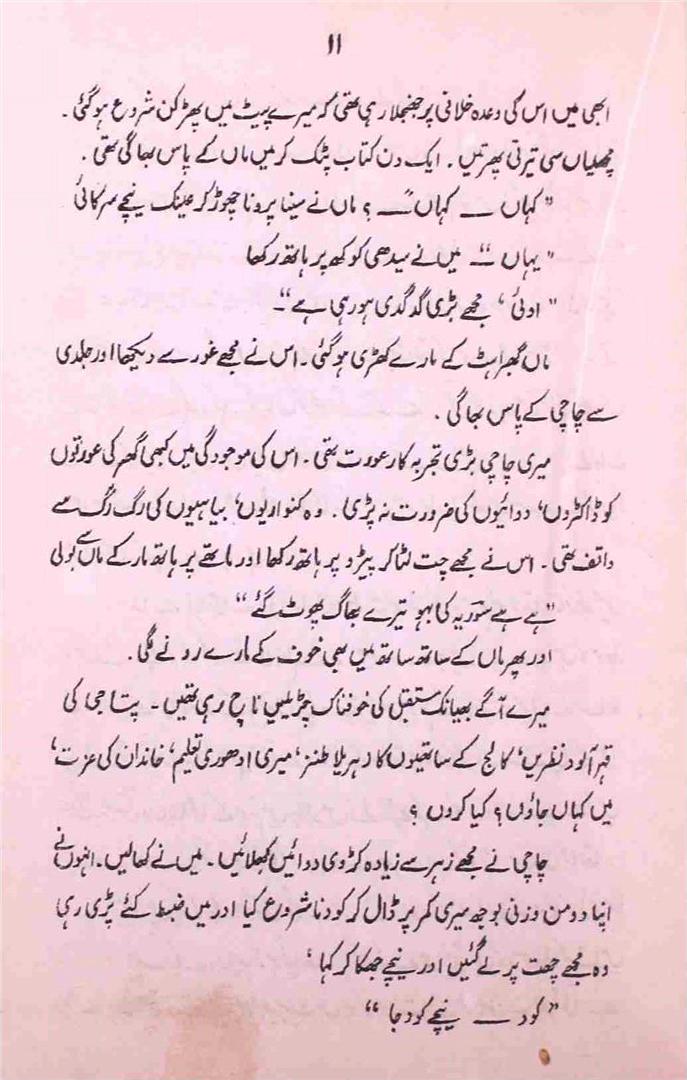 ۱۱
ابھی میں اس کی وعدہ خلافی پر جھنجھلا رہی تھی کہ میرے پیٹ میں پھڑکن شروع ہوگئی۔
مچھلیاں سی تیرتی پھرتیں۔ ایک دن کتاب پٹک کر میں ماں کے پاس بھاگی تھی۔
"کہاں — کہاں" — ؟ ماں نے سینا پرونا چھوڑ کر عینک نیچے سرکائی
"یہاں —" میں نے سیدھی کوکھ پر ہاتھ رکھا
"اوئی، مجھے بڑی گدگدی ہو رہی ہے"۔
ماں گھبراہٹ کے مارے کھڑی ہوگئی۔ اس نے مجھے غور سے دیکھا اور جلدی
سے چاچی کے پاس بھاگی۔
میری چاچی بڑی تجربہ کار عورت تھی۔ اس کی موجودگی میں کبھی گھر کی عورتوں
کو ڈاکٹروں، دوائیوں کی ضرورت نہ پڑی۔ وہ کنواریوں، بیاہیوں کی رگ رگ سے
واقف تھی۔ اس نے مجھے چت لٹا کر پیڑو پر ہاتھ رکھا اور ماتھے پر ہاتھ مار کے ماں سے بولی
"ہے ہے سوریہ کی بہو تیرے بھاگ پھوٹ گئے"
اور پھر ماں کے ساتھ ساتھ میں بھی خوف کے مارے رونے لگی۔
میرے آگے بھیانک مستقبل کی خوفناک چڑیلیں ناچ رہی تھیں۔ پتا جی کی
قہر آلود نظریں، کالج کے ساتھیوں کا زہریلا طنز، میری ادھوری تعلیم، خاندان کی عزت،
میں کہاں جاؤں؟ کیا کروں؟
چاچی نے مجھے زہر سے زیادہ کڑوی دوائیں کھلائیں۔ میں نے کھالیں۔ انہوں نے
اپنا دو من وزنی بوجھ میری کمر پر ڈال کر کودنا شروع کیا اور میں ضبط کئے پڑی رہی
وہ مجھے چھت پر لے گئیں اور نیچے جھکا کر کہا،
"کود — نیچے کود جا"